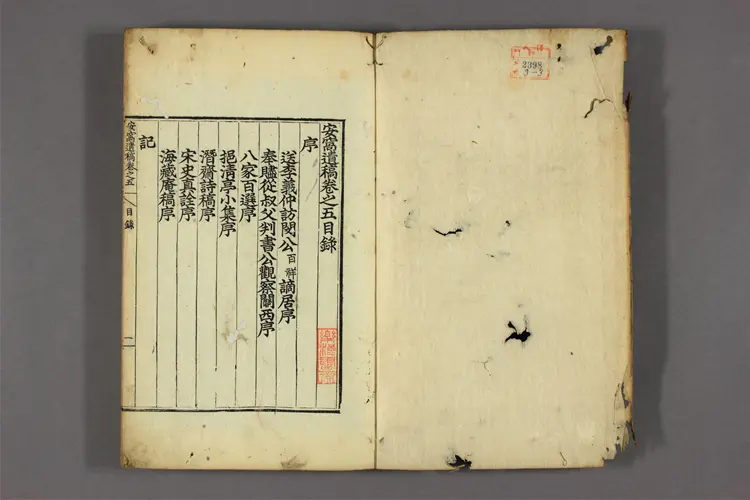 安窩遺稿卷之五目錄
序
送李義仲訪閔公百祥謫居序
奉贐從叔父判書公觀察關西序
八家百選序
挹淸亭小集序
潛齋詩稿序
宋史眞詮序
海藏庵稿序
記
安窩遺稿卷之五
目錄
二
2398
3-3